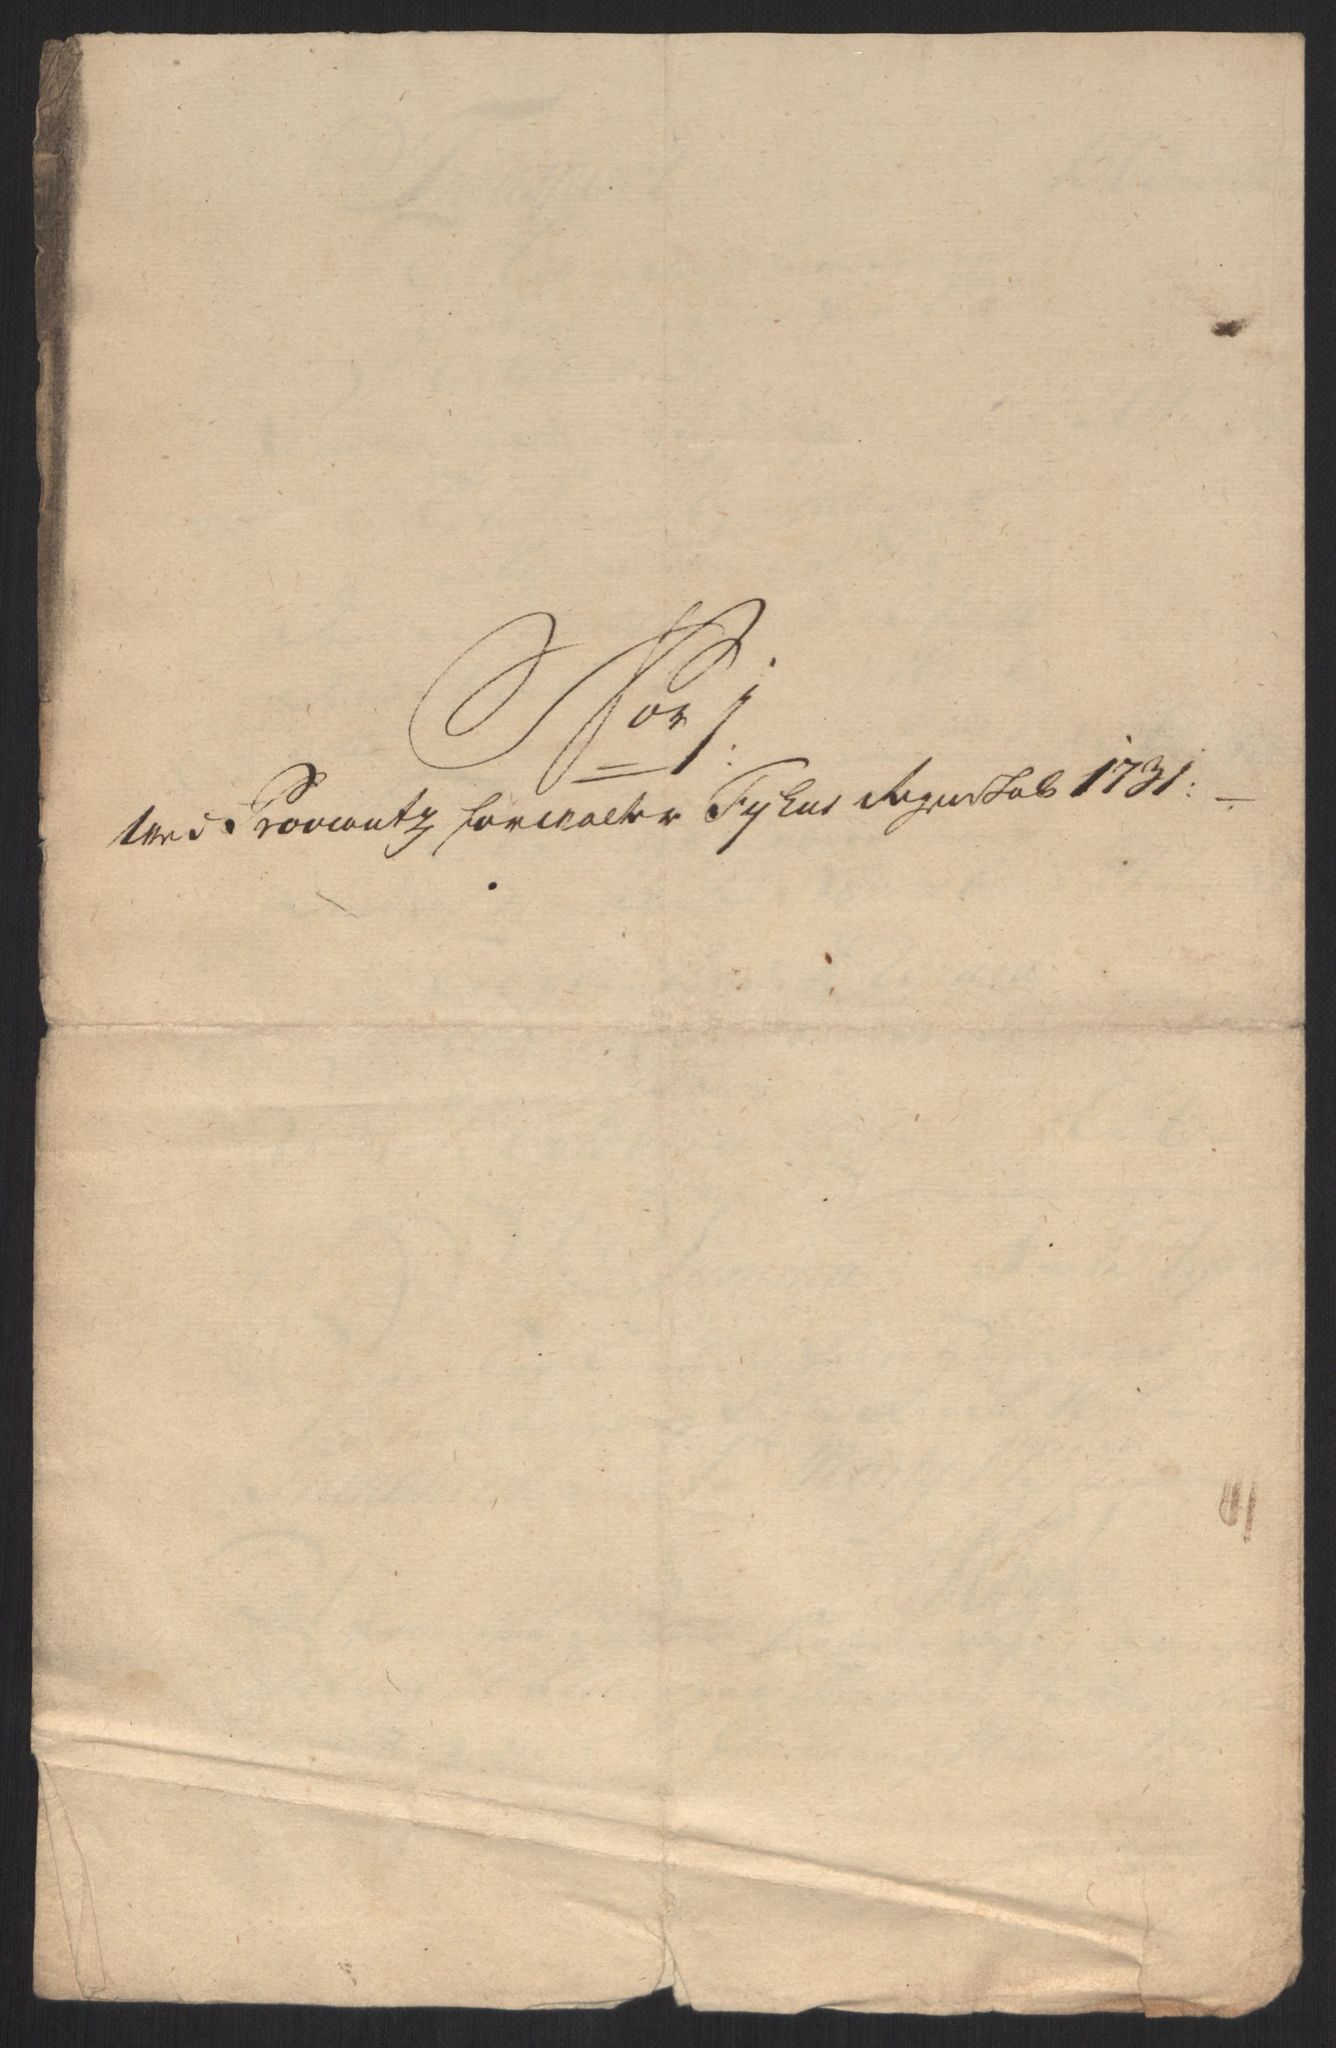 Nor 1:
Ved Proviantz forvalter Fyhns Regnskab 1731: